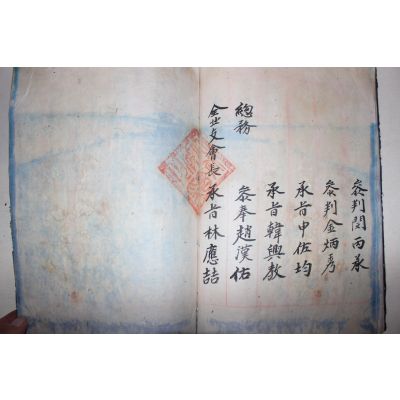 參判閔丙承
參判金炳秀
承旨申佐均
承旨韓興教
總務 參奉趙漢佑
支會長 承旨林應喆